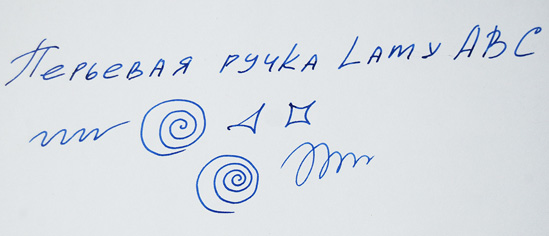 Перьевая ручка Lamy ABC